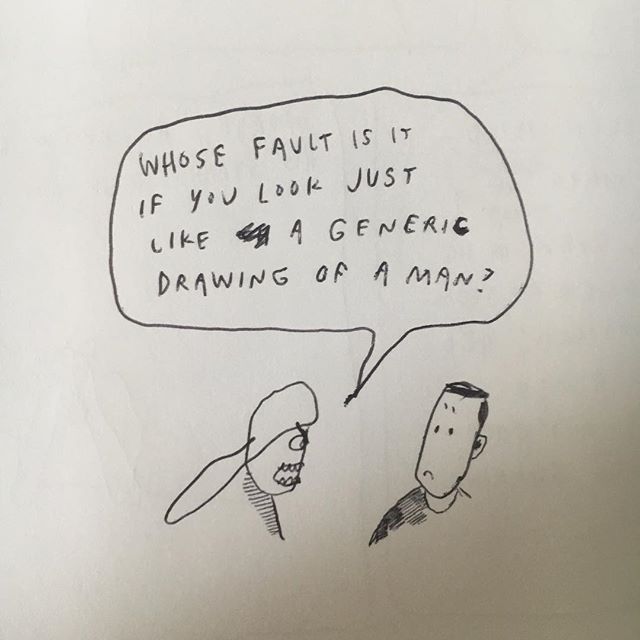 WHOSE FAULT IS IT
IF YOU LOOK JUST
LIKE A GENERIC
DRAWING OF A MAN?